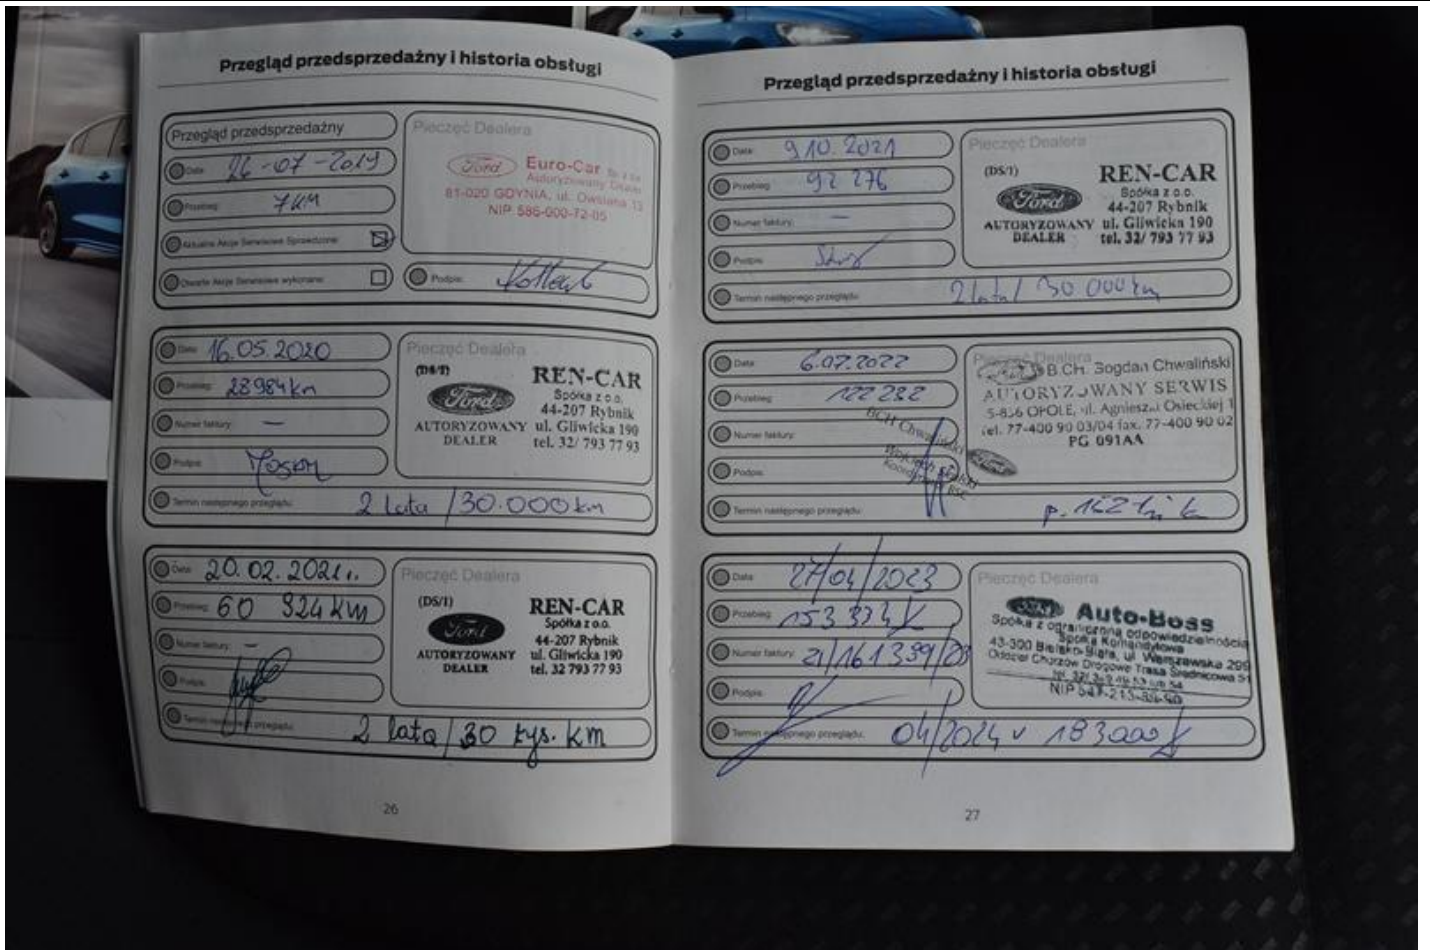 Przegląd przedsprzedażny i historia obsługi
Przegląd przedsprzedażny
Data: 26-07-2019
Przebieg: 7KM
Aktualne Akcje Serwisowe Sprawdzone:
Otwarte Akcje Serwisowe wykonane:
Pieczęć Dealera
Ford Euro-Car Sp. z o.o.
Autoryzowany Dealer
81-020 GDYNIA, ul. Owsiana 13
NIP 586-000-72-05
Podpis:
Data: 16.05.2020
Przebieg: 28984km
Numer faktury: —
Podpis:
Termin następnego przeglądu: 2 lata /30.000km
Pieczęć Dealera
(DS/1)
REN-CAR
Spółka z o.o.
Ford
44-207 Rybnik
AUTORYZOWANY ul. Gliwicka 190
DEALER tel. 32/ 793 77 93
Data: 20.02.2021r.
Przebieg: 60 924 km
Numer faktury: —
Podpis:
Termin następnego przeglądu: 2 lata/30 tys. km
Pieczęć Dealera
(DS/1)
REN-CAR
Spółka z o.o.
Ford
44-207 Rybnik
AUTORYZOWANY ul. Gliwicka 190
DEALER tel. 32 793 77 93
26
Przegląd przedsprzedażny i historia obsługi
Data: 9.10.2021
Przebieg: 92 276
Numer faktury: —
Podpis:
Termin następnego przeglądu: 2 lata / 30 000 km
Pieczęć Dealera
(DS/1)
REN-CAR
Spółka z o.o.
Ford
44-207 Rybnik
AUTORYZOWANY ul. Gliwicka 190
DEALER tel. 32/ 793 77 93
Data: 6.07.2022
Przebieg: 122 232
Numer faktury:
Podpis:
BCH Chwaliński
Termin następnego przeglądu:
Pieczęć Dealera
B.CH. Bogdan Chwaliński
AUTORYZOWANY SERWIS
5-836 OPOLE, ul. Agnieszki Osieckiej 1
tel. 77-400 90 03/04 fax. 77-400 90 02
PG 091AA
Data: 27/04/2023
Przebieg: 153 334
Numer faktury: 21/161339/23
Podpis:
Termin następnego przeglądu: 04/2024 v 183000
Pieczęć Dealera
Auto-Boss
Spółka z ograniczoną odpowiedzialnością
Spółka Komandytowa
43-300 Bielsko-Biała, ul. Warszawska 295
Oddział Chorzów Drogowa Trasa Średnicowa 51
27